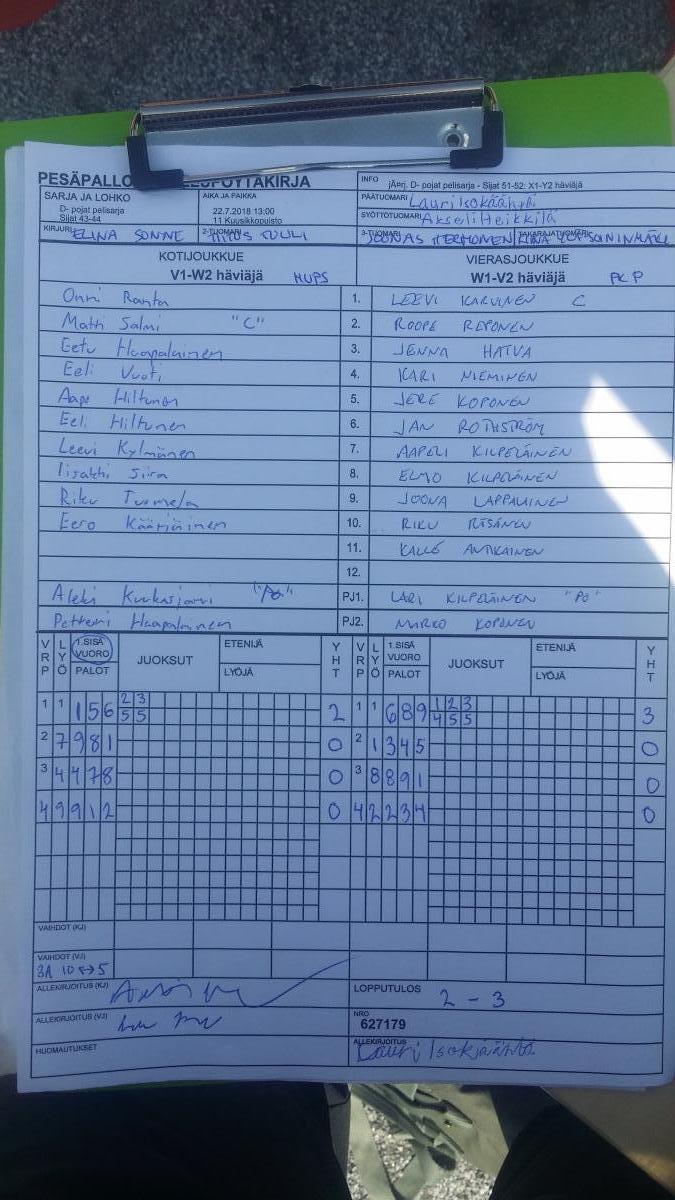 PESÄPALLO
INFO jÄerj. D- pojat pelisarja - Sijat 51-52: X1-Y2 häviäjä
SARJA JA LOHKO
D- pojat pelisarja
Sijat 43-44
AIKA JA PAIKKA
22.7.2018 13:00
11 Kuusikkopuisto
PÄÄTUOMARI Lauri Isokääntä
SYÖTTÖTUOMARI Akseli Heikkilä
KIRJURI ELINA SONNE
2-TUOMARI
3-TUOMARI JOONAS
KOTIJOUKKUE
V1-W2 häviäjä HUPS
VIERASJOUKKUE
W1-V2 häviäjä PKP
Onni Ranta 1. LEEVI KARVINEN C
Matti Salmi "C" 2. ROOPE REPONEN
Eetu Haapalainen 3. JENNA HATVA
Eeli Vuoti 4. KARI NIEMINEN
Aapo Hiltunen 5. JERE KOPONEN
Eeli Hiltunen 6. JAN ROTHSTRÖM
Leevi Kylmänen 7. AAPELI KILPELÄINEN
Iisakki Siira 8. ELMO KILPELÄINEN
Riku Tuomela 9. JOONA LAPPALAINEN
Eero Kääriäinen 10. RIKU RISÄNEN
11. KALLE ANTIKAINEN
12.
Aleksi "Po" PJ1. LARI KILPELÄINEN "PO"
Petteri Haapalainen PJ2. MARKO KOPONEN
VRP LYÖ 1.SISÄ VUORO PALOT JUOKSUT ETENIJÄ LYÖJÄ YHT VRP LYÖ 1.SISÄ VUORO PALOT JUOKSUT ETENIJÄ LYÖJÄ YHT
2 3 1 2 3
1 1 1 5 6 5 5 2 1 1 6 8 9 4 5 5 3
2 7 9 8 1 0 2 1 3 4 5 0
3 4 4 7 8 0 3 8 8 9 1 0
4 9 9 1 2 0 4 2 2 3 4 0
VAIHDOT (KJ)
VAIHDOT (VJ)
3A 10↔5
ALLEKIRJOITUS (KJ)
LOPPUTULOS 2 - 3
ALLEKIRJOITUS (VJ)
NRO
627179
HUOMAUTUKSET
ALLEKIRJOITUS Lauri Isokääntä